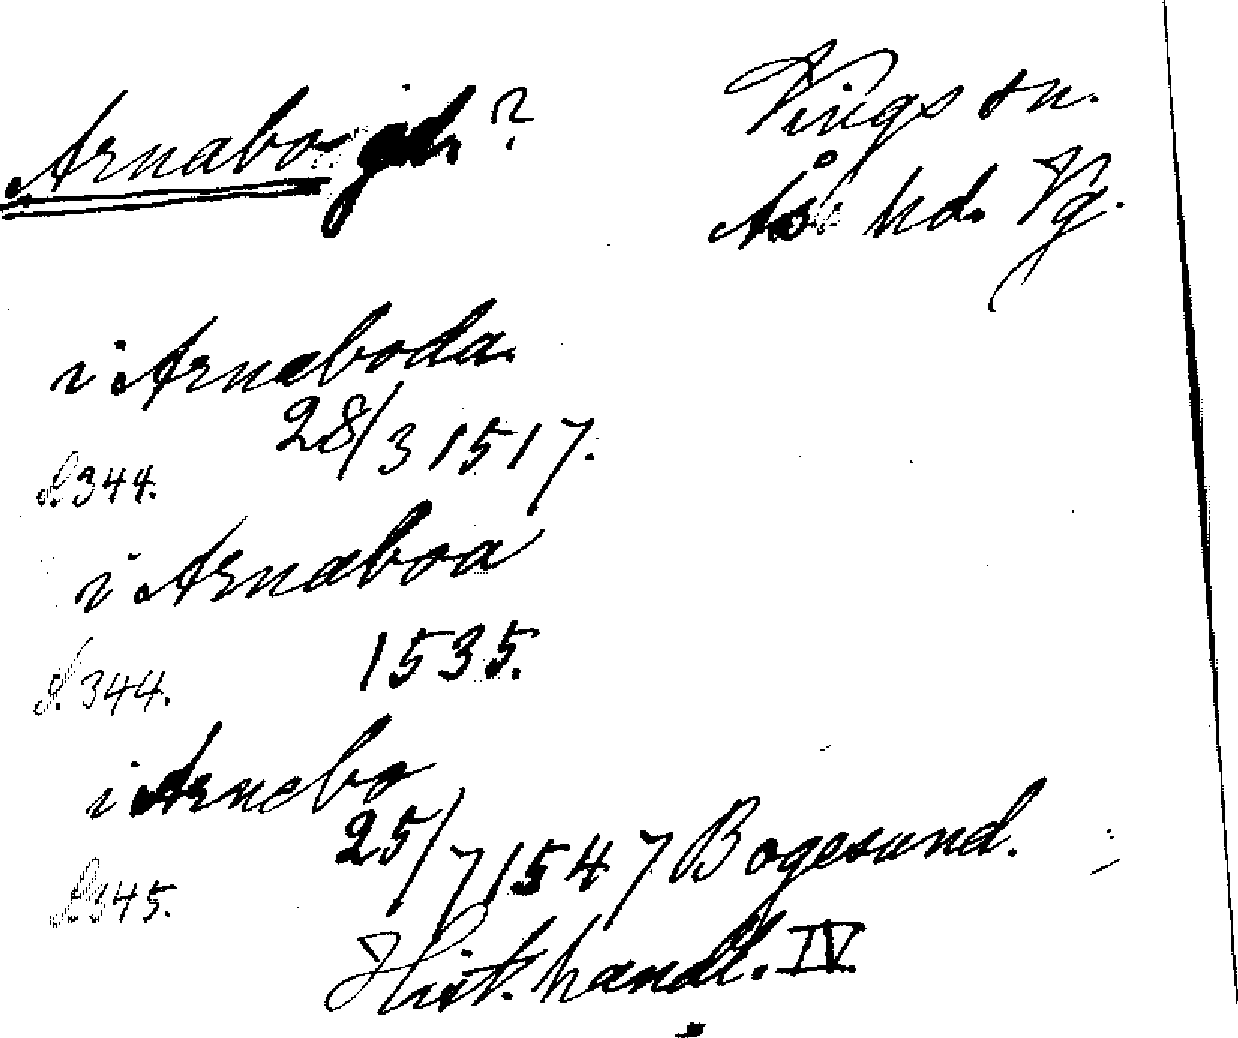 Arnabo gd. ?
Vings sn.
Ås hd. Vg.
i Arnaboda.
28/3 1517.
S. 344.
i Arnaboa
1535.
S. 344.
i Arnebo
25/7 1547 Bogesund.
S. 345.
Hist. handl. IV.